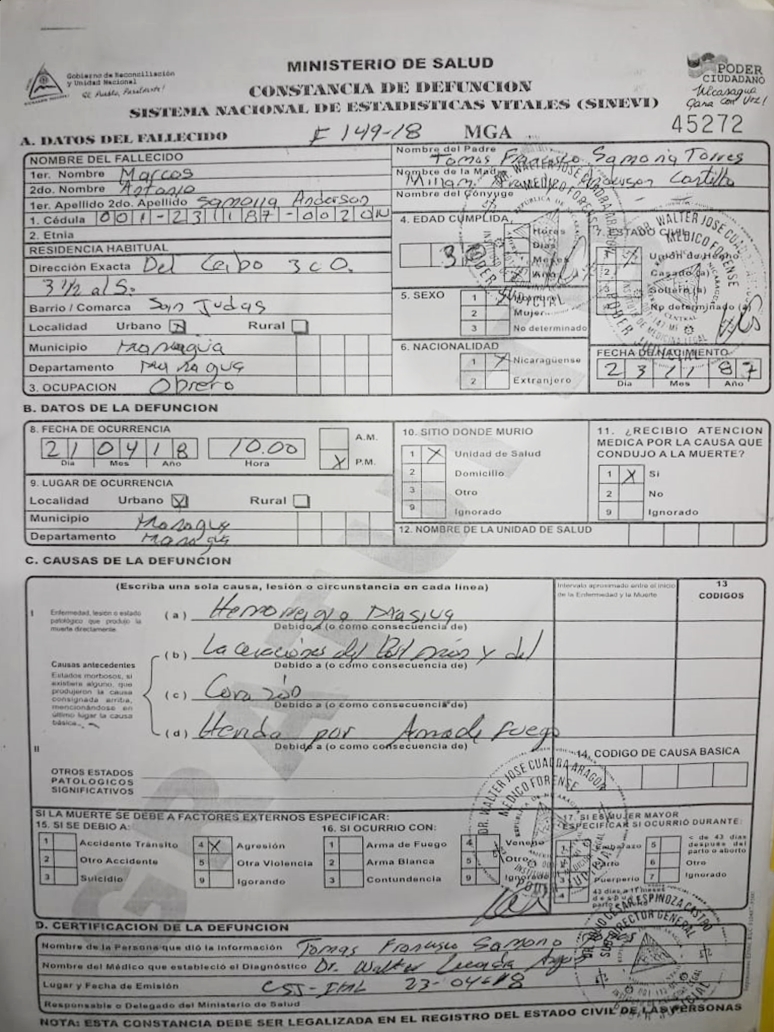 Gobierno de Reconciliación
y Unidad Nacional
El Pueblo, Presidente!
MINISTERIO DE SALUD
CONSTANCIA DE DEFUNCION
SISTEMA NACIONAL DE ESTADISTICAS VITALES (SINEVI)
PODER
CIUDADANO
Nicaragua
Gana con Voz!
A. DATOS DEL FALLECIDO
149-18 MGA
45272
NOMBRE DEL FALLECIDO
1er. Nombre Marcos
2do. Nombre Antonio
1er. Apellido 2do. Apellido Samoria Anderson
1. Cédula 001-231187-0020
2. Etnia
RESIDENCIA HABITUAL
Dirección Exacta Del 3 c O.
3 1/2 al S.
Barrio / Comarca San Judas
Localidad Urbano X Rural
Municipio Managua
Departamento Managua
3. OCUPACION Obrero
Nombre del Padre
Tomas Francisco Samoria Torres
Nombre de la Madre
Anderson Castillo
Nombre del Cónyuge
4. EDAD CUMPLIDA
30
Horas
Días
Meses
Años
5. SEXO
1 X Hombre
2 Mujer
3 No determinado
6. NACIONALIDAD
1 Nicaragüense
2 Extranjero
7. ESTADO CIVIL
1 X Unión de Hecho
2 Casado (a)
3 Soltero (a)
No determinado (a)
FECHA DE NACIMIENTO
23 11 87
Día Mes Año
B. DATOS DE LA DEFUNCION
8. FECHA DE OCURRENCIA
21 04 18 10.00
Día Mes Año Hora
A.M.
X P.M.
9. LUGAR DE OCURRENCIA
Localidad Urbano X Rural
Municipio Managua
Departamento Managua
10. SITIO DONDE MURIO
1 X Unidad de Salud
2 Domicilio
3 Otro
9 Ignorado
11. ¿RECIBIO ATENCION
MEDICA POR LA CAUSA QUE
CONDUJO A LA MUERTE?
1 X Si
2 No
9 Ignorado
12. NOMBRE DE LA UNIDAD DE SALUD
C. CAUSAS DE LA DEFUNCION
(Escriba una sola causa, lesión o circunstancia en cada línea)
Intervalo aproximado entre el inicio
de la Enfermedad y la Muerte
13
CODIGOS
I Enfermedad, lesión o estado
patológico que produjo la
muerte directamente.
(a) Hemorragia Masiva
Debido a (o como consecuencia de)
Causas antecedentes
Estados morbosos, si
existiera alguno, que
produjeron la causa
consignada arriba,
mencionándose en
último lugar la causa
básica.
(b) Laceraciones del Pulmón y del
Debido a (o como consecuencia de)
(c) Corazón
Debido a (o como consecuencia de)
(d) Herida por Arma de fuego
Debido a (o como consecuencia de)
II
OTROS ESTADOS
PATOLOGICOS
SIGNIFICATIVOS
14. CODIGO DE CAUSA BASICA
GRATUITA
SI LA MUERTE SE DEBE A FACTORES EXTERNOS ESPECIFICAR:
15. SI SE DEBIO A:
1 Accidente Tránsito
2 Otro Accidente
3 Suicidio
4 X Agresión
5 Otra Violencia
9 Igorando
16. SI OCURRIO CON:
1 Arma de Fuego
2 Arma Blanca
3 Contundencia
4 Veneno
5 Otro
9 Ignorado
17. SI ES MUJER MAYOR
ESPECIFICAR SI OCURRIO DURANTE:
Embarazo
Parto
Puerperio
4
5 < de 43 días
después del
parto o aborto
6 Otro
7 Ignorado
DR. WALTER JOSE CUADRA ARAGON
MEDICO FORENSE
PODER JUDICIAL
DR. JULIO CESAR ESPINOZA CASTRO
SUB-DIRECTOR GENERAL
D. CERTIFICACION DE LA DEFUNCION
Nombre de la Persona que dió la información Tomas Francisco Samoria Torres
Nombre del Médico que estableció el Diagnóstico Dr. Walter
Lugar y Fecha de Emisión CSJ-IML 23-04-18
Responsable o Delegado del Ministerio de Salud
NOTA: ESTA CONSTANCIA DEBE SER LEGALIZADA EN EL REGISTRO DEL ESTADO CIVIL DE LAS PERSONAS